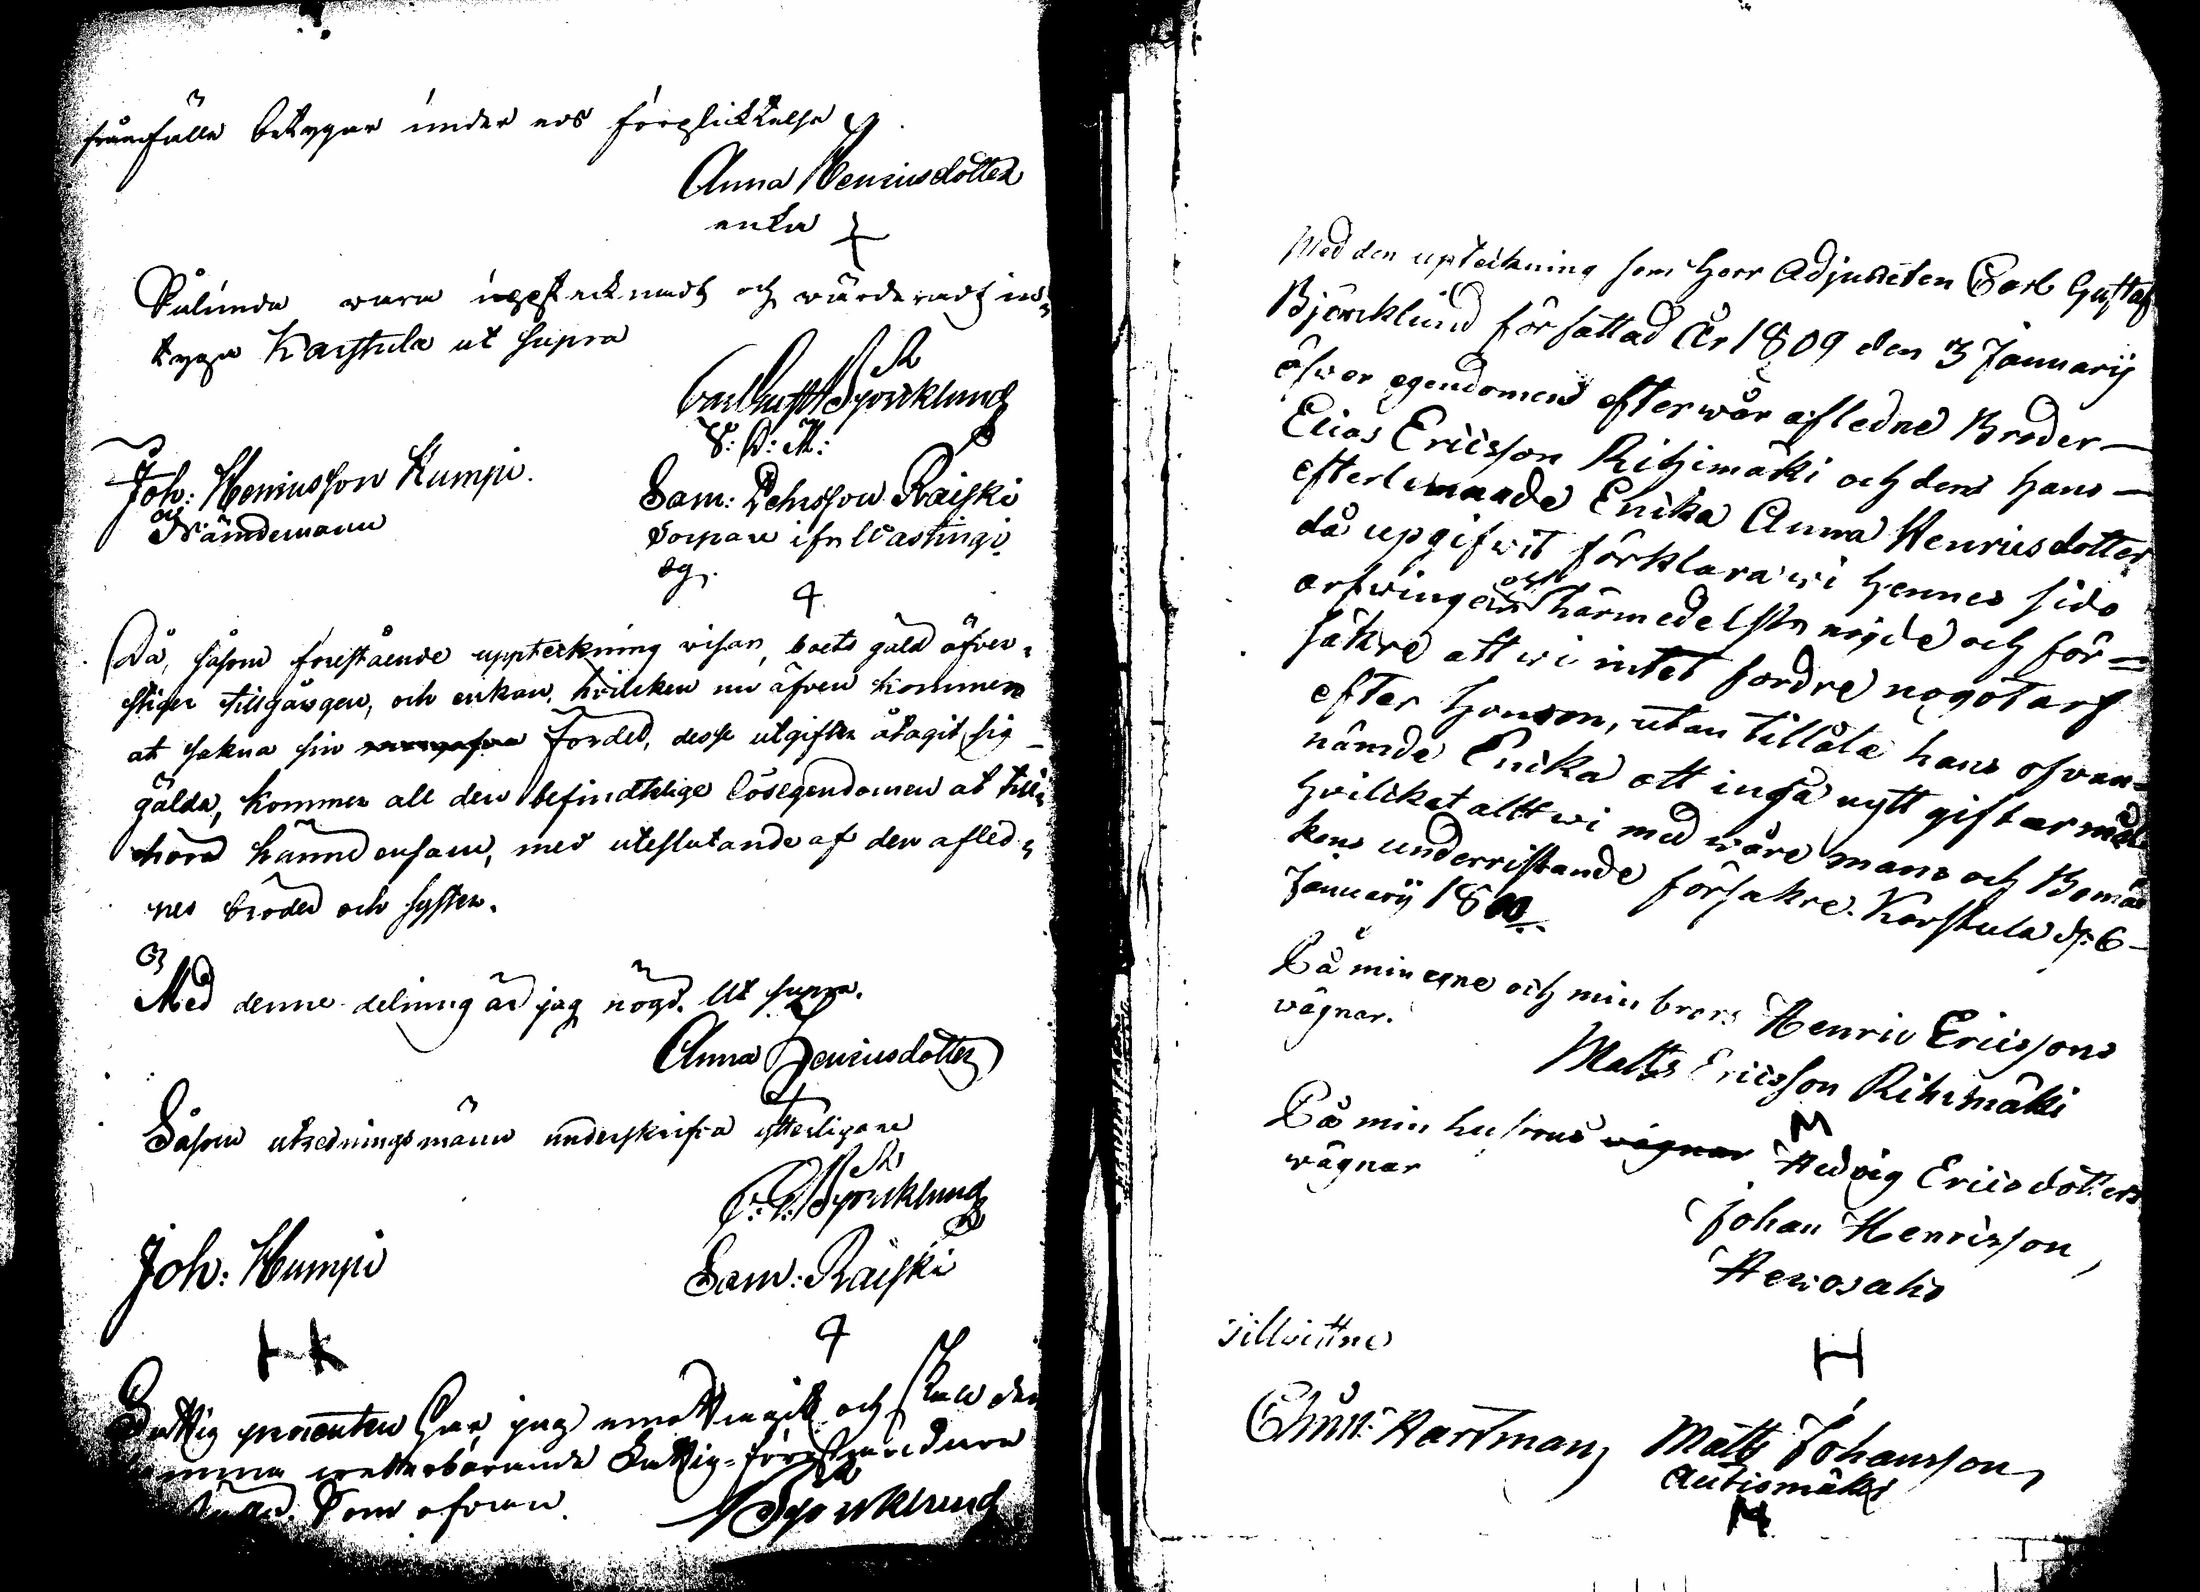 framfälle betygar under eds förplicktelse
Anna Henricsdotter
enka
Sålunda vara upptecknadt och wärderadt in-
tyga Karstula ut supra
Carl Gust Björcklund
V: D: M:
Joh: Henricsson Kumpu
Nämdeman
Sam: Räiski
Torpare ifr
Då, såsom förestående uppteckning visar, boets gäld öfver-
stiger tillgången, och enkan, hvilcken nu äfven kommer
at sakna sin fördel, desse utgifter åtagit sig
gälda, kommer all den befindtelige lösegendomen at till-
höra hänne ensam, med uteslutande af den afled-
nes bröder och syster.
Med denne delning är jag nögd. Ut supra.
Anna Henricsdotter
Såsom utredningsmän underskrifva ytterligare
C: G: Björcklund
Joh: Kumpu
Sam: Räiski
Fattig procenten har jag emottagit och skall den
samma Fattig-föreståndare
Som ofvan.
Björcklund
Med den upteckning som Herr Adjuncten Carl Gustaf
Björcklund författad År 1809 den 3 Januarij
öfver egendomen efter wår afledne Broder
Elias Ericsson Rihimäki och den hans
efterlemnade Enika Anna Henricsdotter
då upgifvit förklara wi hennes sido
arfwingar oss härmedelst nöjde och för-
säkre att wi intet fordre nogot arf
efter honom, utan tillåte hans ofvan-
nämde Enika att ingå nytt giftermål
hvilcket altt wi med wåre namns och Bomär-
kens underristande försäkre. Karstula d: 6
Januarij 1809.
På min egne och min brors Henric Ericssons
vägnar.
Matts Ericsson Rihimäki
På min hustrus wägnar Hedvig Ericsdotters
wägnar
Johan Henricsson
Tillvittne
H
Christ: Hartman Matts Johansson
Autiomäki